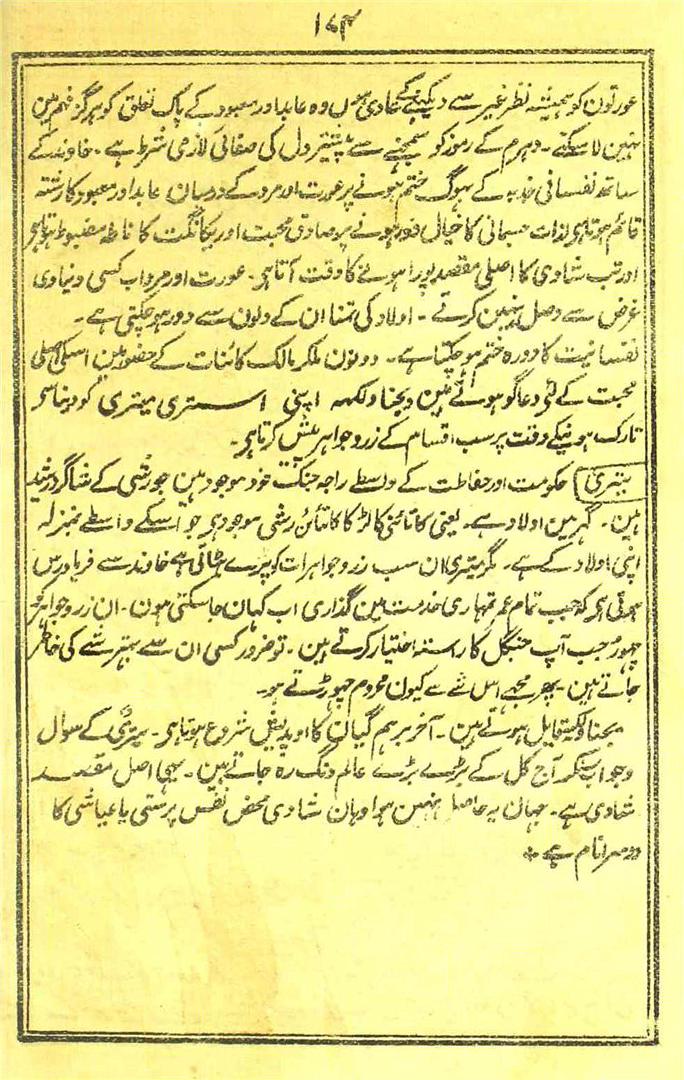 ۱۷۴
عورتون کو ہمیشہ نظر غیر سے دیکھنے کے عادی ہوں وہ عابد اور معبود کے پاک تعلق کو ہرگز فہم مین
نہین لا سکتے ۔ دہرم کے رموز کو سمجھنے سے پیشتر دل کی صفائی لازمی شرط ہے ۔ خاوند کے
ساتھ نفسانی جذبہ کے بہوگ ختم ہونے پر عورت اور مرد کے درمیان عابد اور معبود کا رشتہ
قائم ہوتا ہی لذات جسمانی کا خیال دور ہونے پر صادق محبت اور یگانگت کا ناطہ مضبوط ہوتا ہی
اور تب شادی کا اصلی مقصد پورا ہونے کا وقت آتا ہی ۔ عورت اور مرد اب کسی دنیاوی
غرض سے وصل نہین کرتے ۔ اولاد کی تمنا ان کے دلون سے دور ہو چکتی ہے ۔
نفسانیت کا دورہ ختم ہو چکتا ہے ۔ دونون ملکر مالک کائنات کے حضور مین اسکی اصلی
محبت کے لئی دعاگو ہوتے مین یجناولکہہ اپنی استری میتری کو دنیا سے
تارک ہونیکے وقت پر سب اقسام کے زر و جواہر پیش کرتا ہی ۔
میتری حکومت اور حفاظت کے واسطے راجہ جنک خود موجود ہین جو رشی کے شاگرد رشید
ہین ۔ گہر مین اولاد ہے ۔ یعنی کاتائنی کا لڑکا کاتائن رشی موجود ہی جو اسکے واسطے بمنزلہ
اپنی اولاد کے ہے ۔ مگر میتری ان سب زر و جواہرات کو پرے ہٹاتی ہے خاوند سے فریاد رس
ہوتی ہی کہ جب تمام عمر تمہاری خدمت مین گذاری اب کہان جا سکتی ہون ۔ ان زر و جواہر کو
چہوڑ جب آپ جنگل کا رستہ اختیار کرتے ہین ۔ تو ضرور کسی ان سے بہتر شے کی خاطر
جاتے ہین ۔ پہر مجہے اس شے سے کیون محروم چہوڑتے ہو ۔
یجناولکہہ قایل ہوتے ہین ۔ آخر برہم گیان کا اوپدیش شروع ہوتا ہی ۔ میتری کے سوال
و جواب سنکر آج کل کے بڑے بڑے عالم دنگ رہ جاتے ہین ۔ یہی اصل مقصد
شادی ہے ۔ جہان یہ حاصل نہین ہوا وہان شادی محض نفس پرستی یا عیاشی کا
دوسرا نام ہے ٭